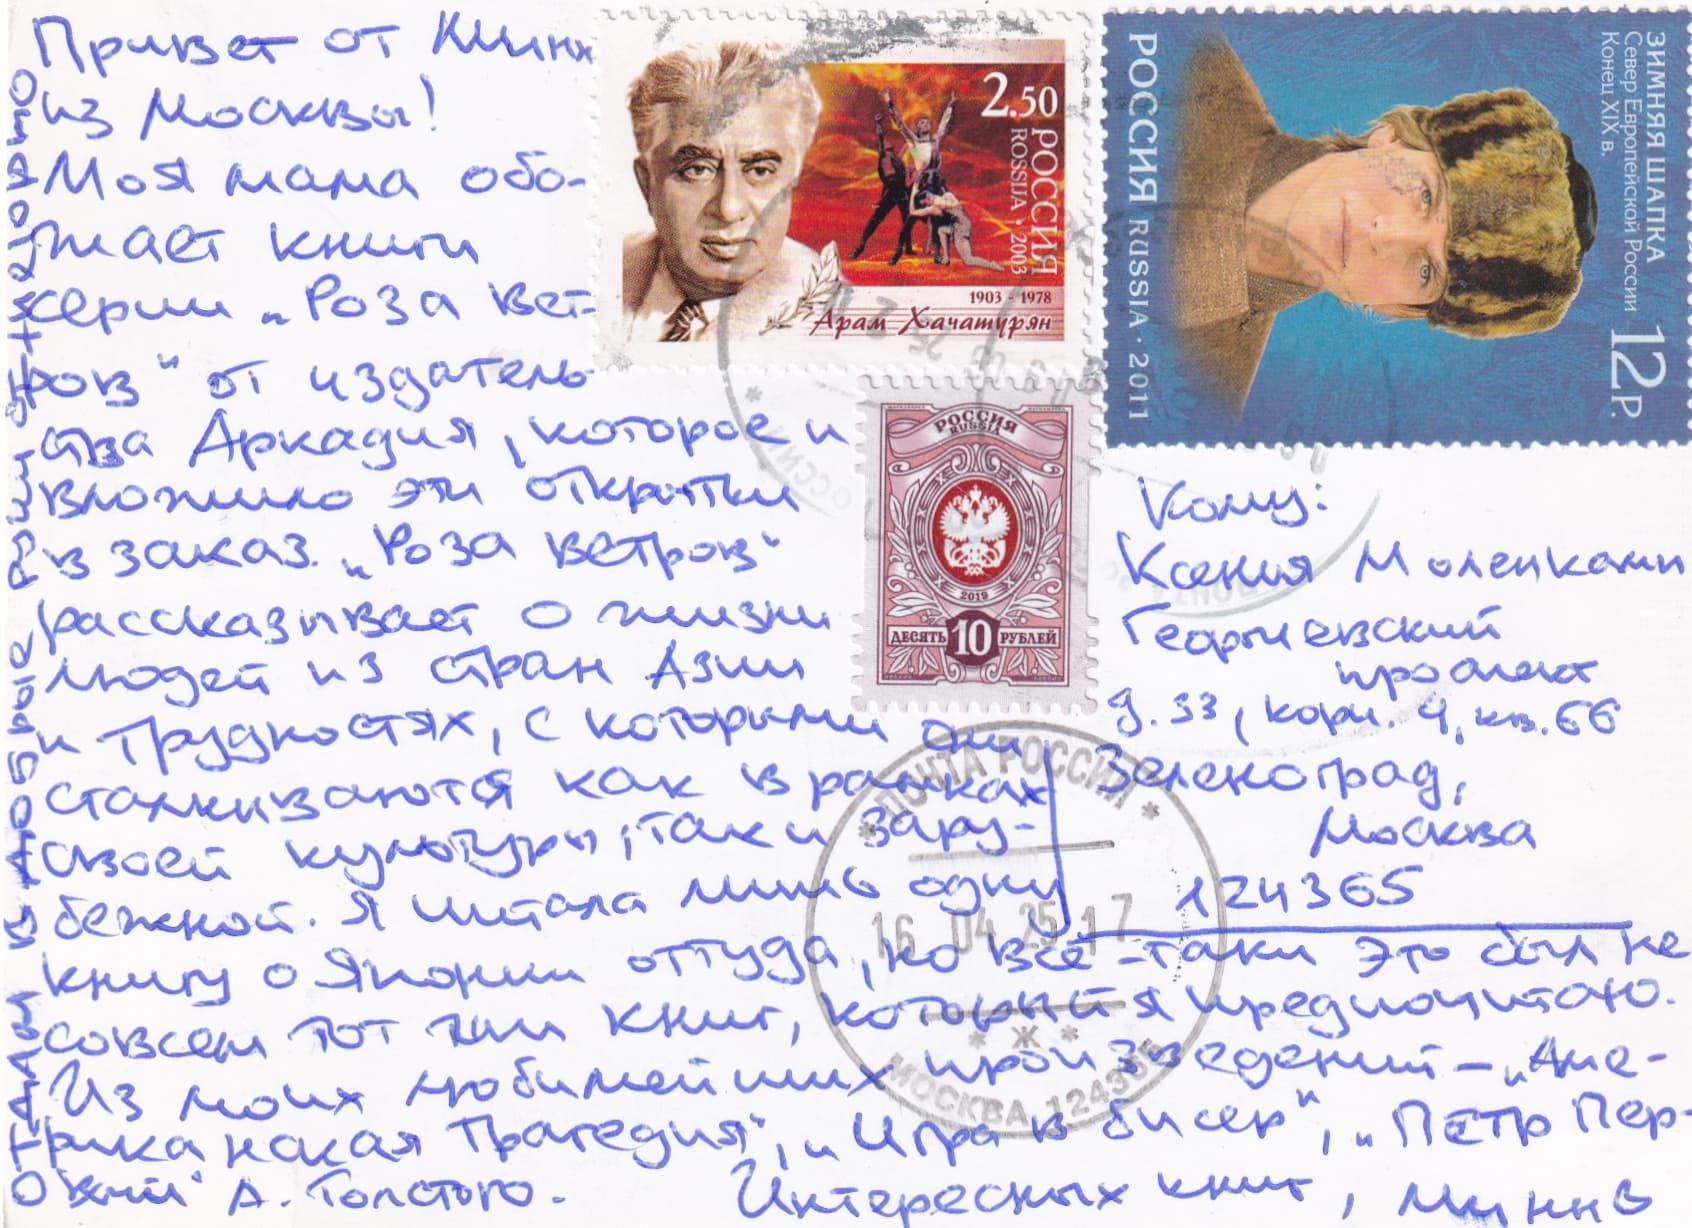 Привет от Минны
из Москвы!
Моя мама обо-
жает книги
серии „Роза вет-
ров" от издатель
ства Аркадия, которое и
вложило эти открытки
в заказ. „Роза ветров"
рассказывает о жизни
людей из стран Азии
и трудностях, с которыми они
сталкиваются как в рамках
своей культуры, так и зару-
бежной. Я читала лишь одну
книгу о Японии оттуда, но всё-таки это был не
совсем тот тип книг, который я предпочитаю.
Из моих любимейших произведений – „Аме-
риканская трагедия", „Игра в бисер", „Пётр Пер-
вый" А. Толстого.
Интересных книг,
2.50
РОССИЯ
ROSSIJA · 2003
1903 - 1978
Арам Хачатурян
ЗИМНЯЯ ШАПКА
Север Европейской России
Конец XIX в.
12 Р.
РОССИЯ RUSSIA · 2011
РОССИЯ
RUSSIA
2019
ДЕСЯТЬ 10 РУБЛЕЙ
Кому:
Ксения
Георгиевский
проспект
д. 33, корп. 4, кв. 66
Зеленоград,
Москва
124365
* ПОЧТА РОССИИ *
16 04 25 17
* Ж *
МОСКВА 124365